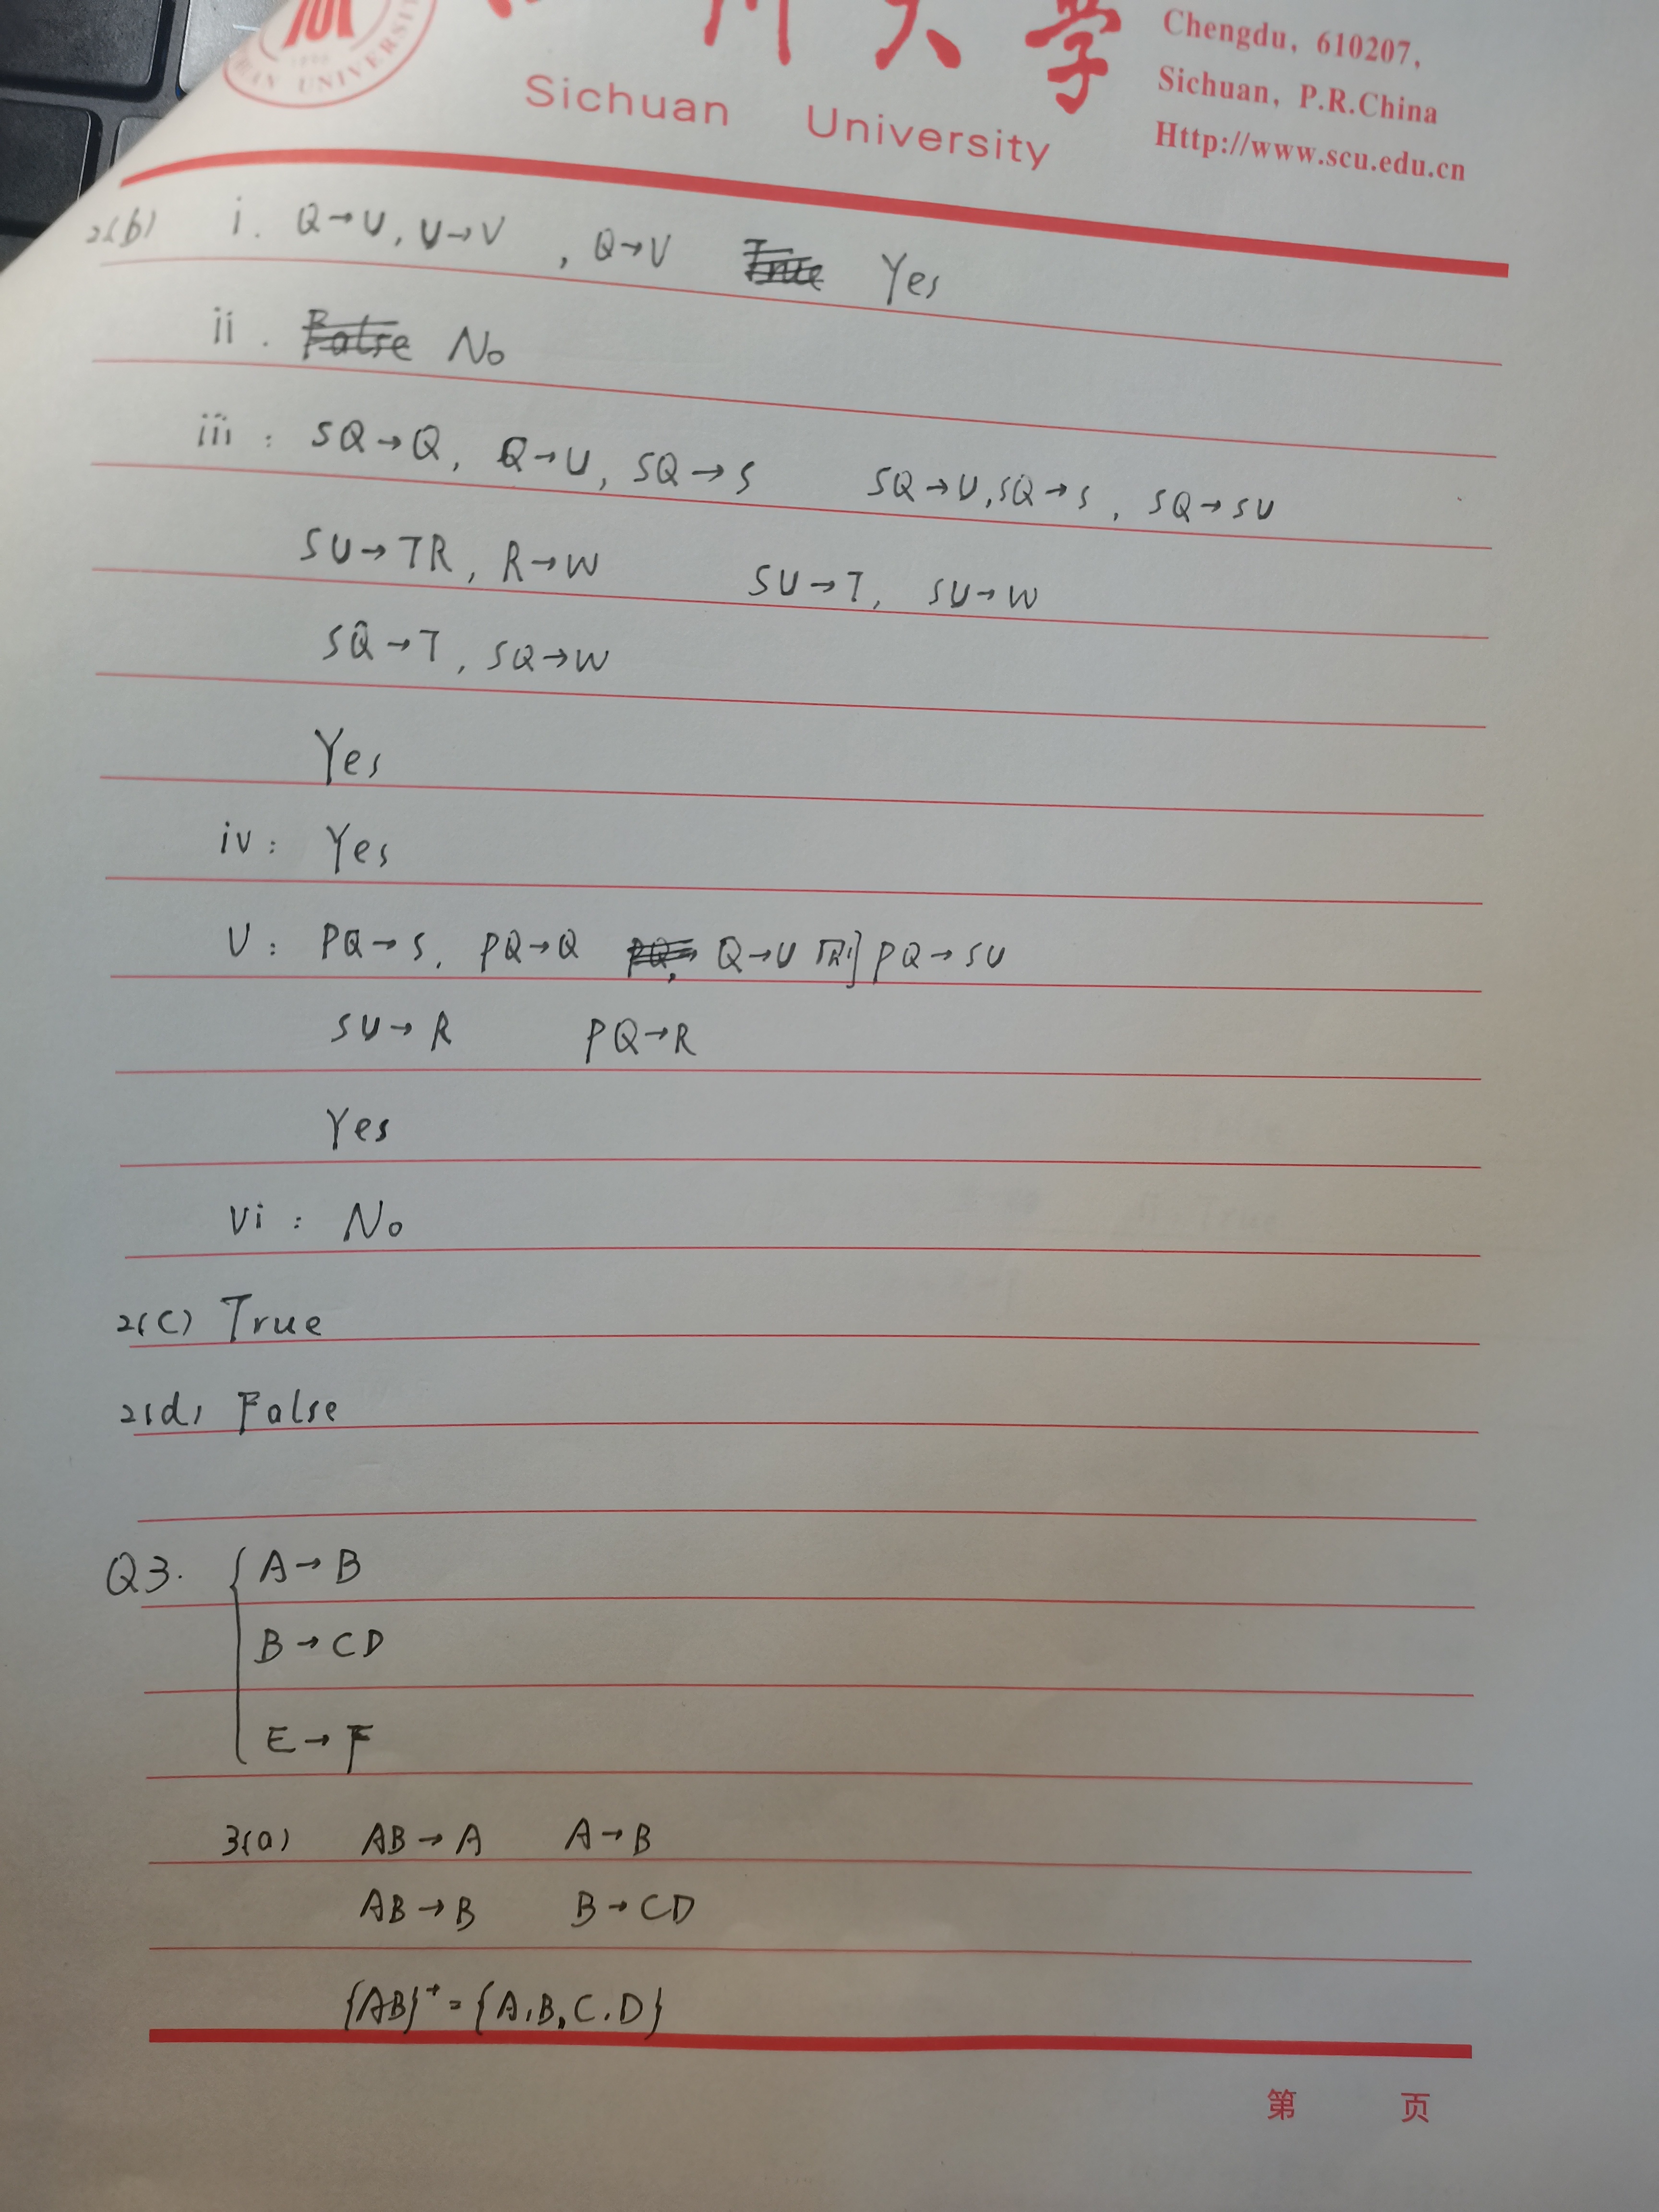 川大学
Sichuan University
Chengdu, 610207,
Sichuan, P.R.China
Http://www.scu.edu.cn
2(b) i. Q→U, U→V , Q→V Yes
ii. No
iii: SQ→Q, Q→U, SQ→S SQ→U, SQ→S, SQ→SU
SU→TR, R→W SU→T, SU→W
SQ→T, SQ→W
Yes
iv: Yes
V: PQ→S, PQ→Q Q→U 则 PQ→SU
SU→R PQ→R
Yes
Vi: No
2(C) True
2(d) False
Q3. { A→B
B→CD
E→F
3(a) AB→A A→B
AB→B B→CD
{AB}⁺={A,B,C,D}
第 页